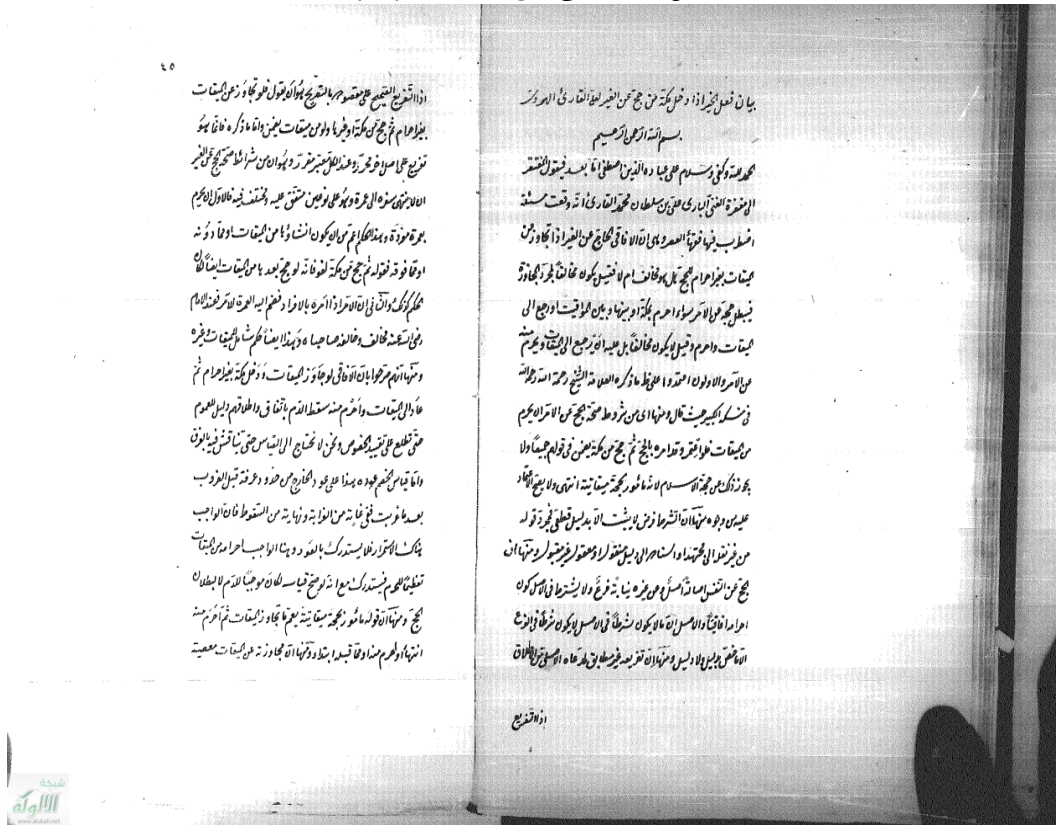 بيان فعل الخير اذا دخل مكة من حج عن الغير لعلي القاري الهروي
بسم الله الرحمن الرحيم
الحمد لله وكفى وسلام على عباده الذين اصطفى اما بعد فيقول المفتقر
الى مغفرة الغني الباري علي بن سلطان محمد القاري انه وقعت مسئلة
اضطرب فيها فقهاء العصر وهي ان الافاقي الحاج عن الغير اذا تجاوز عن
الميقات بغير احرام للحج هل هو مخالف ام لا فقيل يكون مخالفا لمجرد المجاوزة
فيبطل حجه عن الآمر سواء احرم بمكة او بينها وبين المواقيت او رجع الى
الميقات واحرم وقيل لا يكون مخالفا بل عليه ان يرجع الى الميقات ويحرم منه
عن الآمر والاولون اعتمدوا على ظاهر ما ذكره العلامة الشيخ رحمة الله رحمه الله
في منسكه الكبير حيث قال ومنها اي من شروط صحة الحج عن الآمر ان يحرم
من الميقات فلو اعتمر وقد امره بالحج ثم حج من مكة يضمن في قولهم جميعا ولا
يجوز ذلك عن حجة الاسلام لانه مأمور بحجة ميقاتية انتهى ولا يصح الاعتماد
عليه من وجوه منها ان الشرط فرض لا يثبت الا بدليل قطعي فمجرد قوله
من غير نقل الى مجتهد او استناد الى دليل منقول او معقول غير مقبول ومنها ان
الحج عن النفس اصالة اصل وعن غيره نيابة فرع ولا يشترط في الاصل كون
احرامه آفاقيا والاصل ان ما لا يكون شرطا في الاصل لا يكون شرطا في الفرع
الا ما خص بدليل ولا دليل ومنها ان تفريعه غير مطابق لمدعاه الاصلي من الاطلاق
اذ التفريع
٤٥
اذ التفريع الصحيح على مقصوده بالتصريح هو ان يقول فلو تجاوز عن الميقات
بغير احرام ثم حج من مكة او غيرها ولو من ميقات يضمن واما ما ذكره فانما هو
تفريع على اصل آخر محرر وعند الكل معتبر مقرر وهو ان من شرائط صحة الحج عن الغير
ان لا ينتهي سفره الى عمرة وهو على نوعين متفق عليه ومختلف فيه فالاول ان يحرم
بعمرة مفردة وهذا الحكم اعم من ان يكون انشاؤها من الميقات او ما دونه
او ما فوقه فقوله ثم حج من مكة لغو فانه لو حج بعدها من الميقات ايضا لكان
الحكم كذلك والثاني ان الآمر اذا امره بالافراد فضم اليه العمرة للآمر فعند الامام
رضي الله عنه مخالف وخالفه صاحباه وهذا ايضا حكم شامل للميقات وغيره
ومنها انهم صرحوا بان الآفاقي لو جاوز الميقات ودخل مكة بغير احرام ثم
عاد الى الميقات واحرم منه سقط الدم باتفاق واطلاقهم دليل للعموم
حتى تطلع على تقييد الخصوص ونحن لا نحتاج الى القياس حتى يناقش فيه بالفرق
واما قياس الخصم عوده هذا على عود الخارج من حدود عرفة قبل الغروب
بعد ما غربت ففي غاية من الغرابة ونهاية من السقوط فان الواجب
هناك الاستمرار فلا يستدرك بالعود وهنا الواجب احرامه من الميقات
تعظيما للحرم فيستدرك مع انه لو صح قياسه لكان موجبا للدم لا لبطلان
الحج ومنها ان قوله مأمور بحجة ميقاتية يعم ما تجاوز الميقات ثم احرم منه
انتهاء او احرم منه او ما قبله ابتداء ومنها ان مجاوزته عن الميقات معصية
شبكة
الألوكة
www.alukah.net